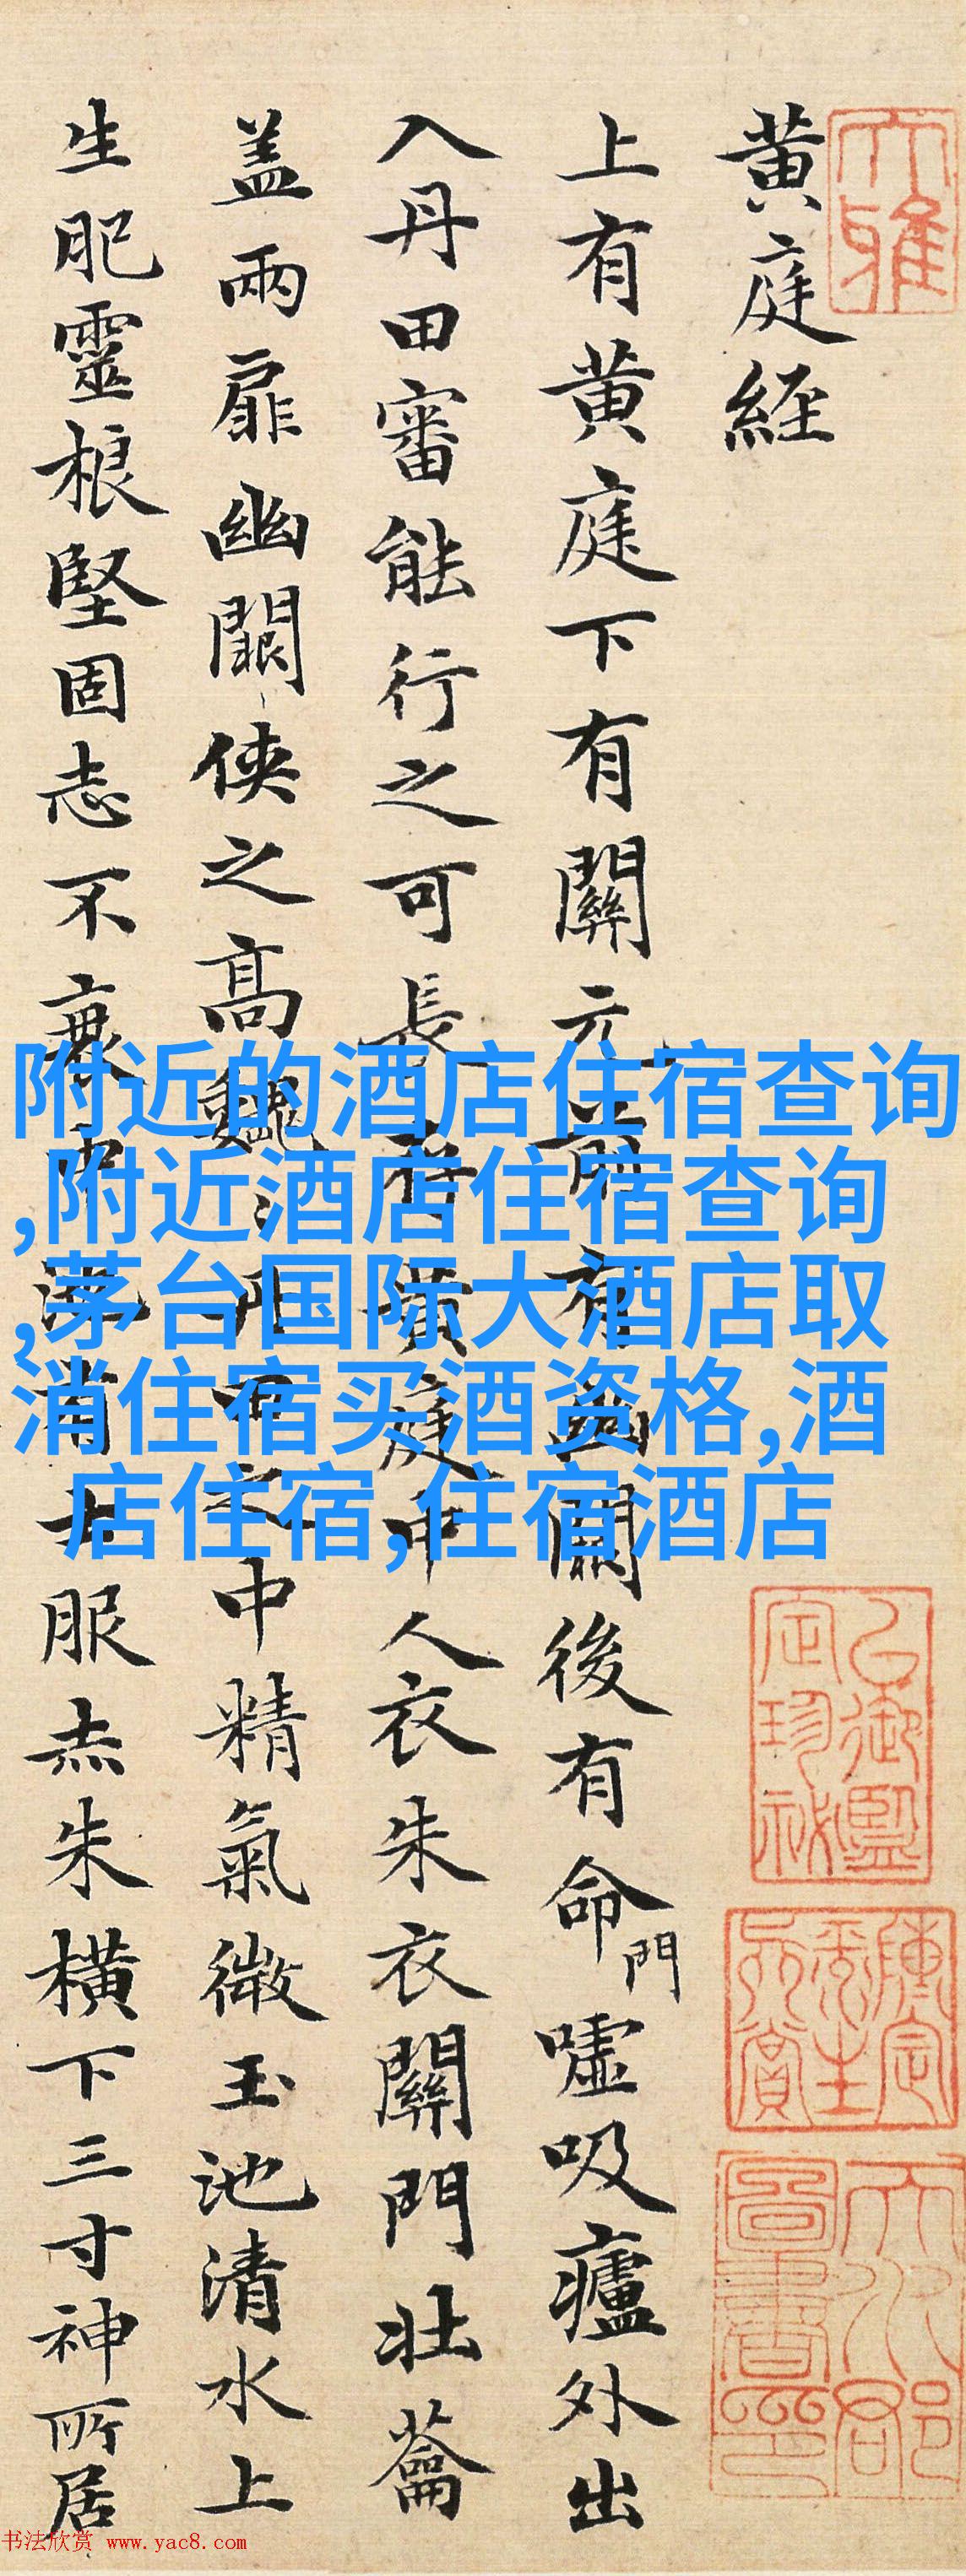 大雅
黄庭経
上有黄庭下有關元前有幽闕後有命門噓吸廬外出
入丹田審能行之可長存黄庭中人衣朱衣關門壯蘥
盖兩扉幽闕侠之高巍丶丹田之中精氣微玉池清水上
生肥靈根堅固志不衰中池有士服赤朱横下三寸神所居
附近的酒店住宿查询
,附近酒店住宿查询
,茅台国际大酒店取
消住宿买酒资格,酒
店住宿,住宿酒店
书法欣赏 www.yac8.com